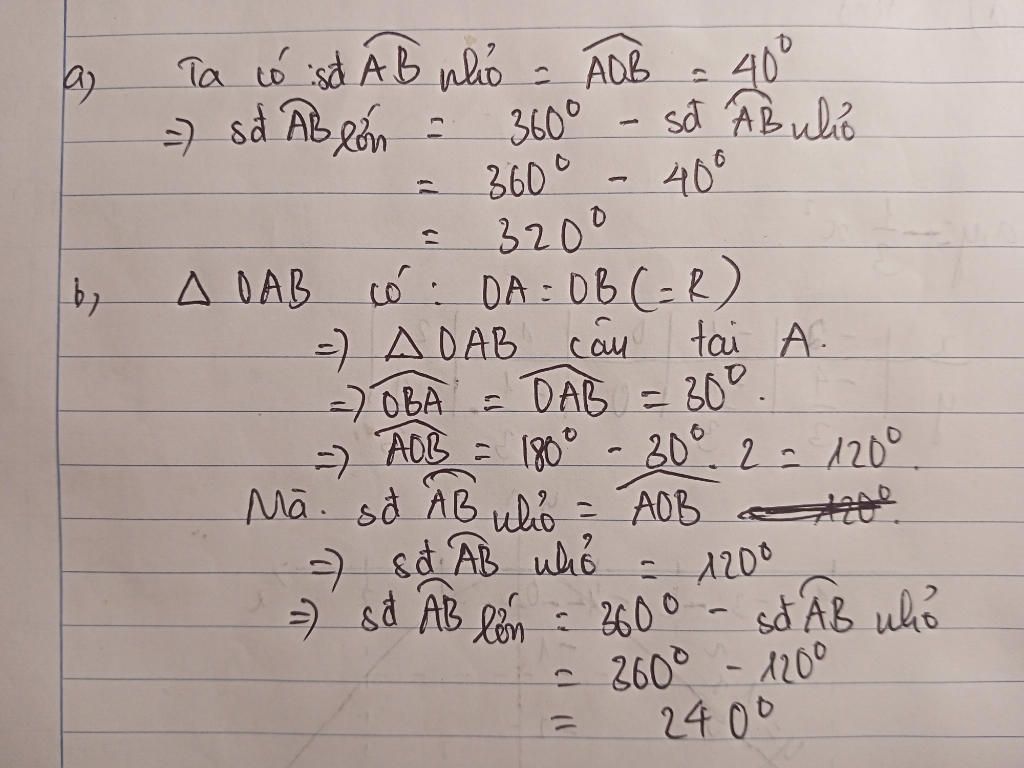 a) Ta có sđ AB nhỏ = AOB = 40°
=> sđ AB lớn = 360° - sđ AB nhỏ
= 360° - 40°
= 320°
b) △ OAB có : OA = OB (= R)
=> △ OAB cân tại A.
=> OBA = OAB = 30°.
=> AOB = 180° - 30° . 2 = 120°.
Mà sđ AB nhỏ = AOB
=> sđ AB nhỏ = 120°
=> sđ AB lớn = 360° - sđ AB nhỏ
= 360° - 120°
= 240°